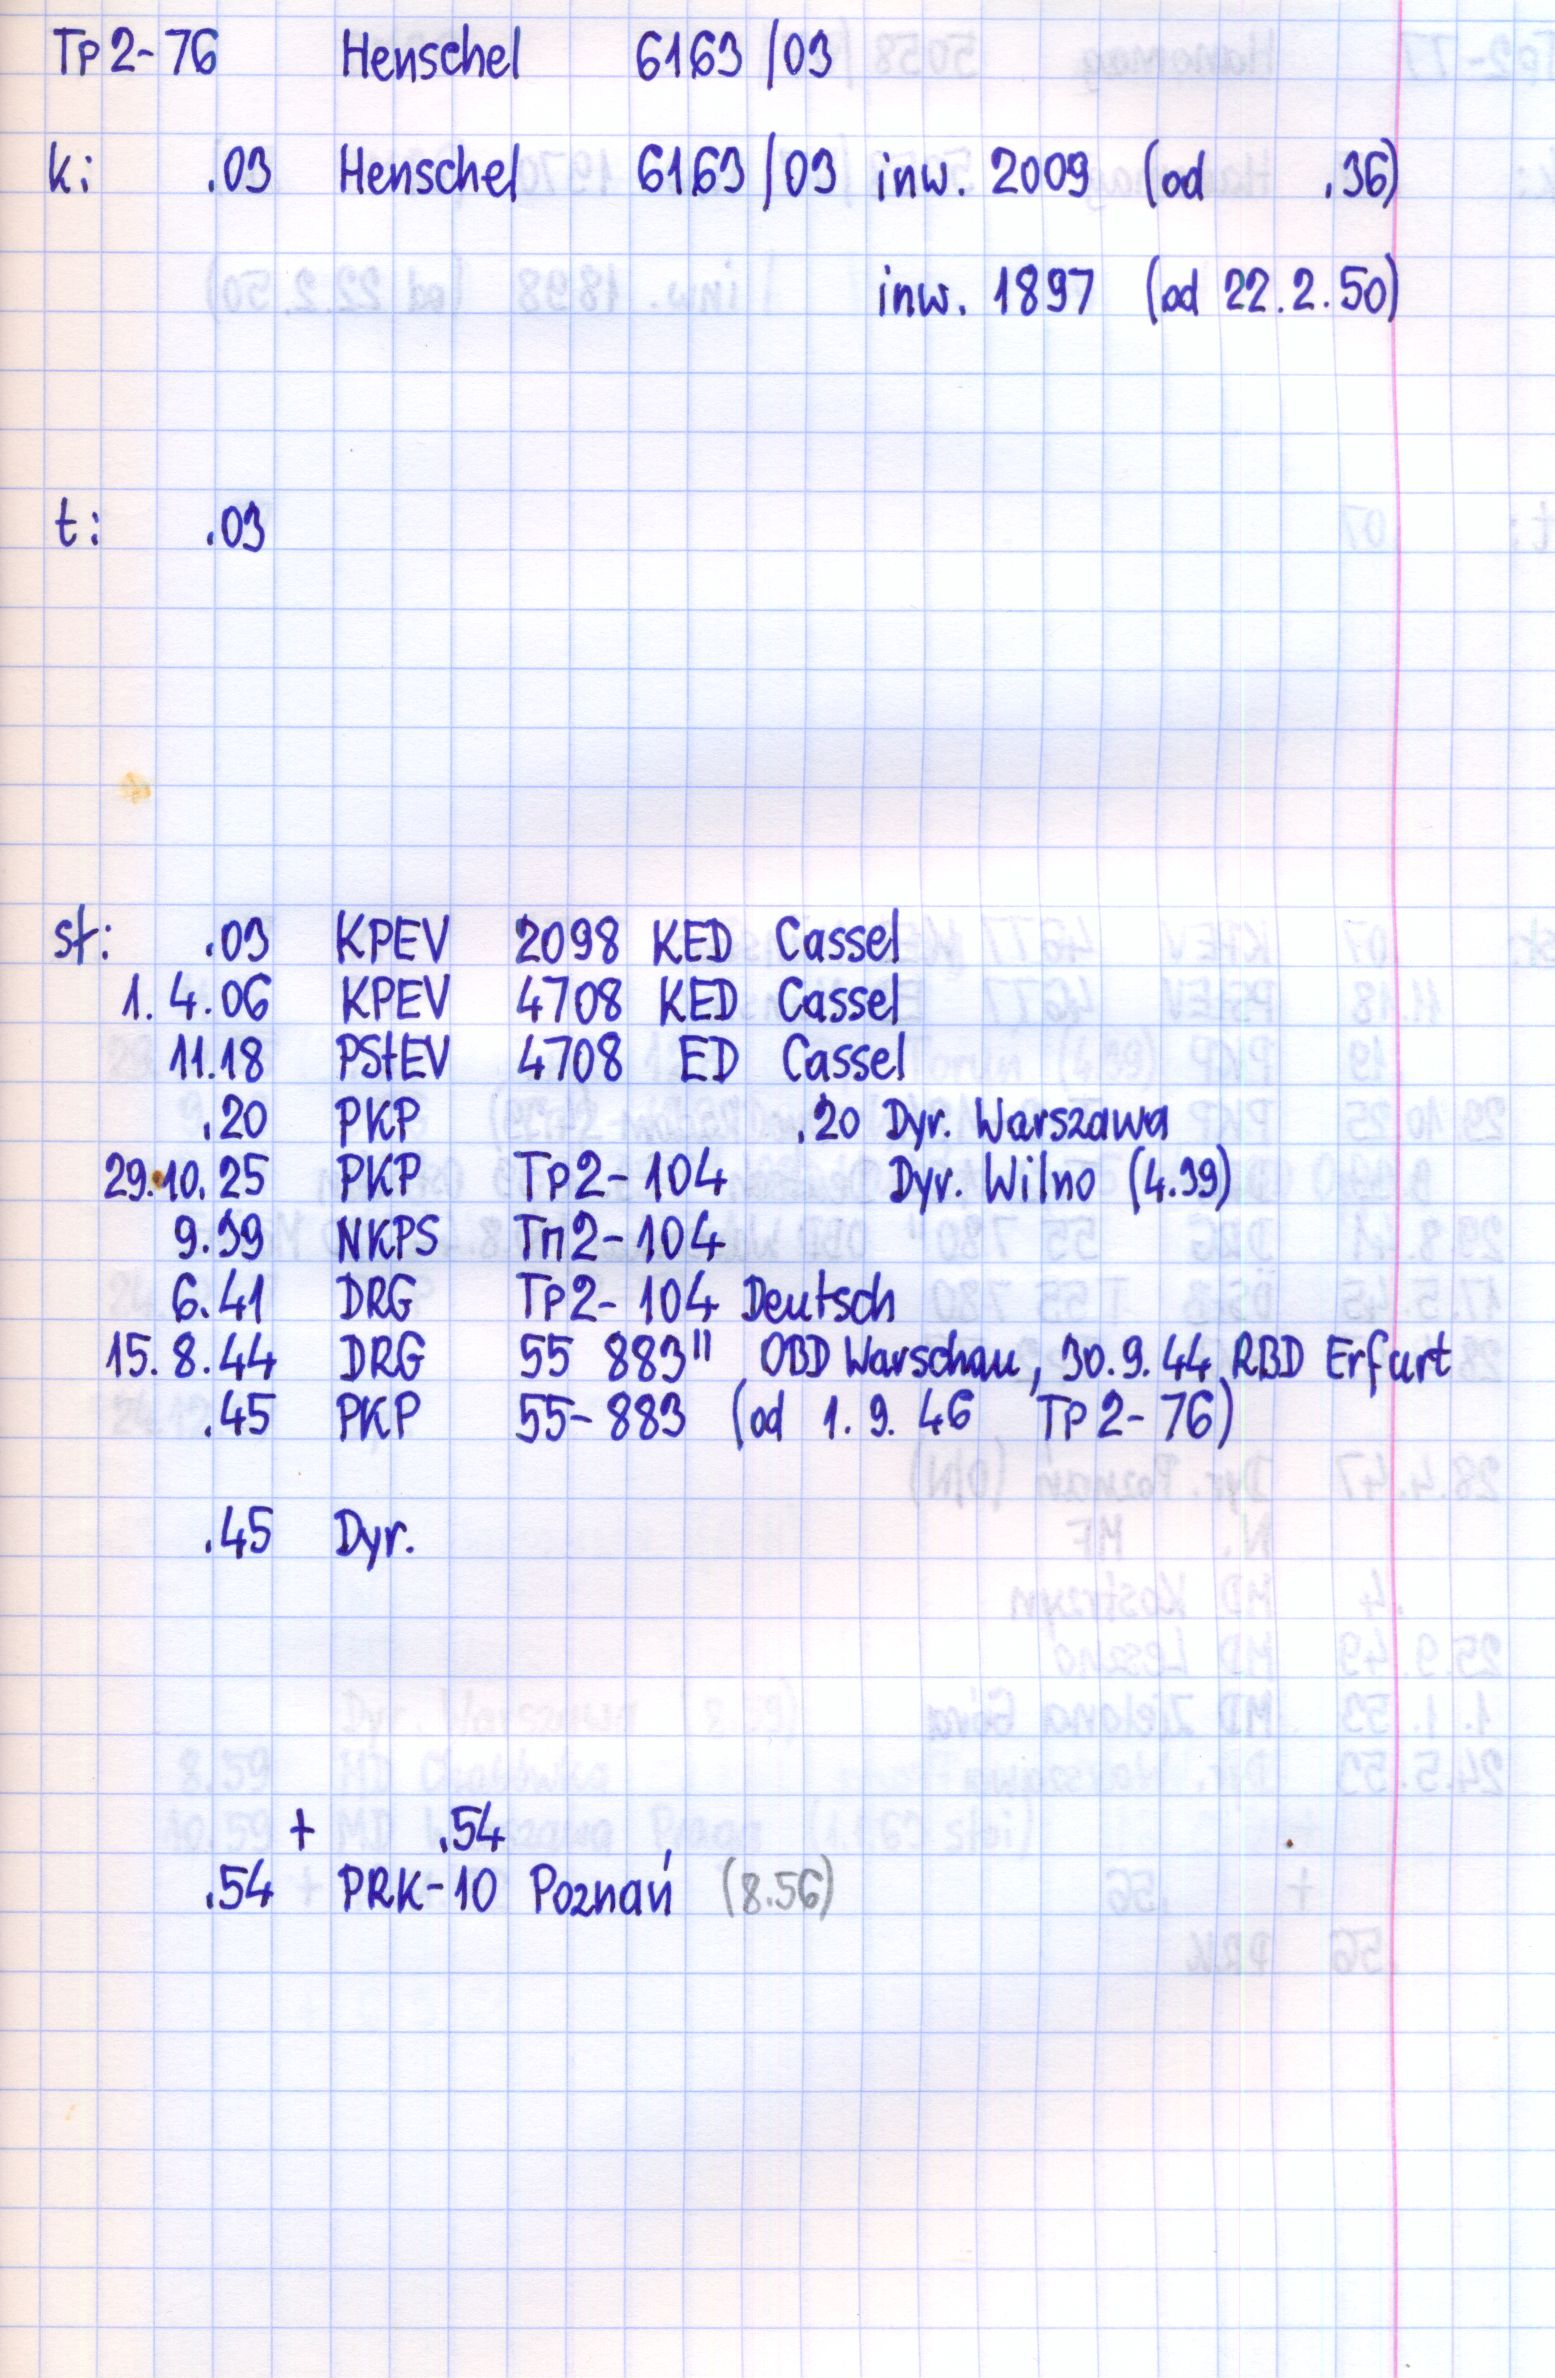 Tp2-76 Henschel 6163/03
k: .03 Henschel 6163/03 inw. 2009 (od .36)
inw. 1897 (od 22.2.50)
t: .03
st: .03 KPEV 2098 KED Cassel
1.4.06 KPEV 4708 KED Cassel
11.18 PStEV 4708 ED Cassel
.20 PKP .20 Dyr. Warszawa
29.10.25 PKP Tp2-104 Dyr. Wilno (4.39)
9.39 NKPS Тп2-104
6.41 DRG Tp2-104 Deutsch
15.8.44 DRG 55 883" OBD Warschau, 30.9.44 RBD Erfurt
.45 PKP 55-883 (od 1.9.46 Tp2-76)
.45 Dyr.
+ .54
.54 PRK-10 Poznań (8.56)